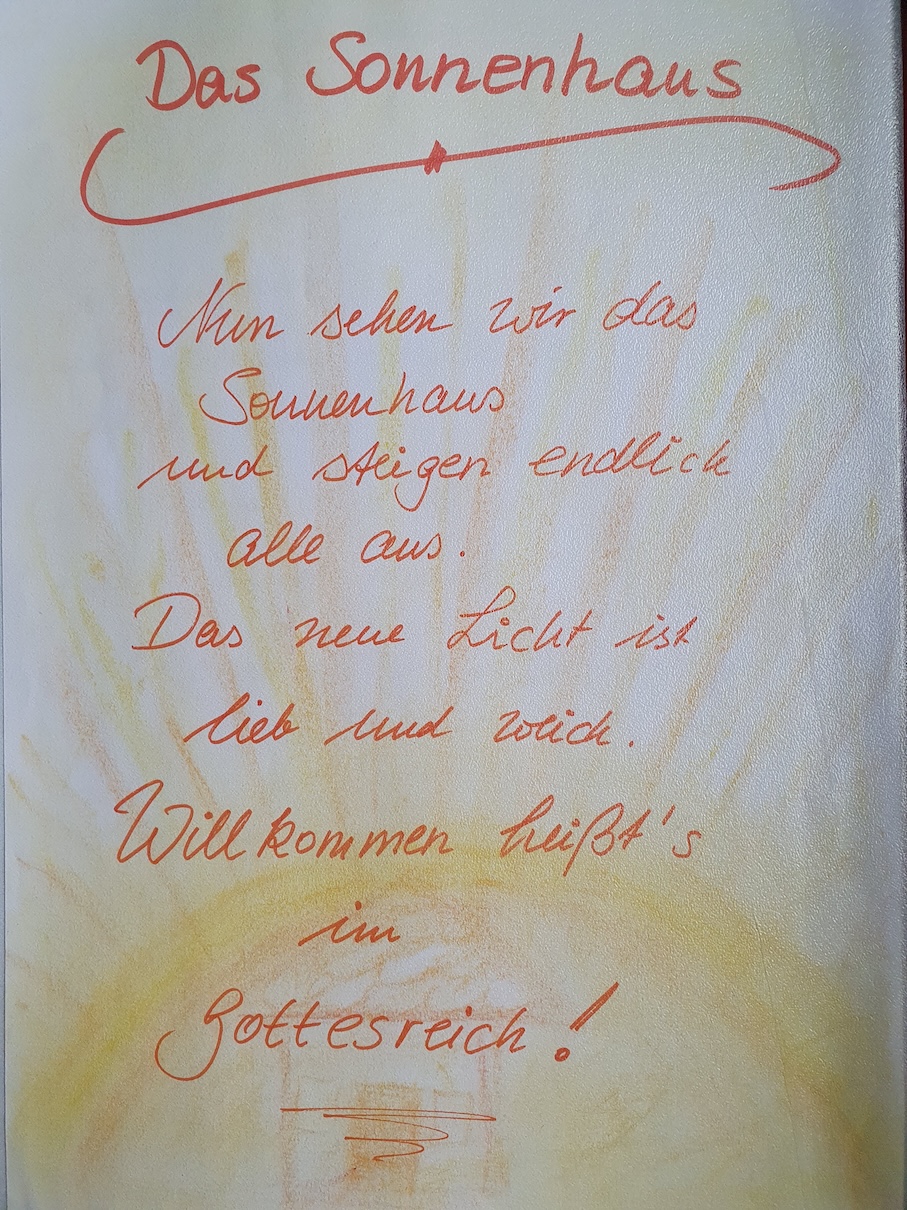 Das Sonnenhaus
Nun sehen wir das
Sonnenhaus
und steigen endlich
alle aus.
Das neue Licht ist
lieb und weich.
Willkommen heißt's
im
Gottesreich!